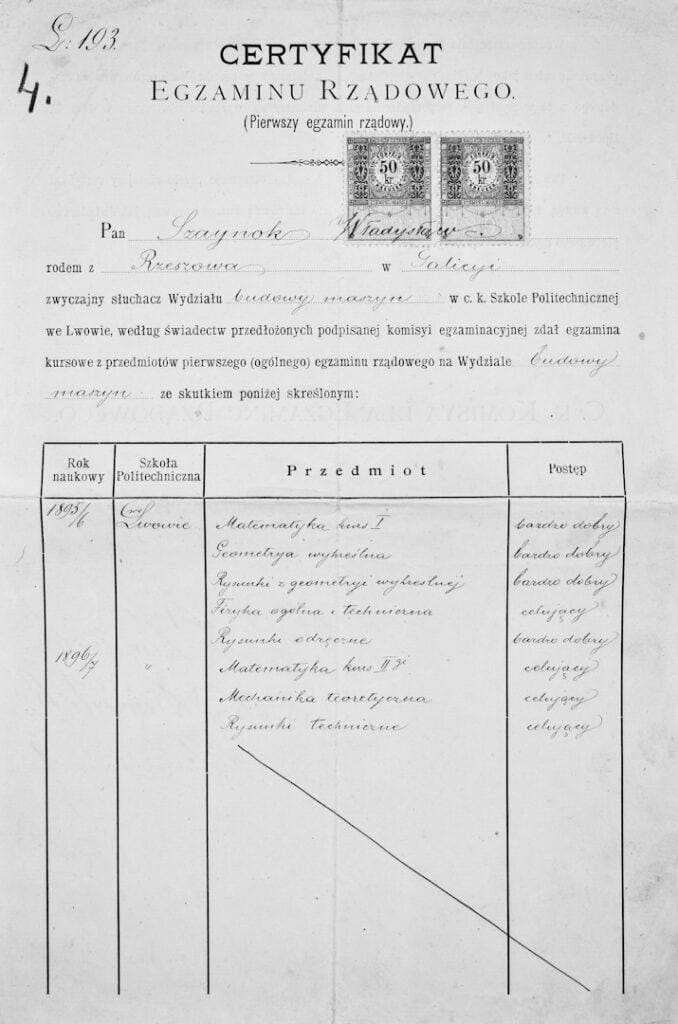 L: 193.
4.
CERTYFIKAT
EGZAMINU RZĄDOWEGO.
(Pierwszy egzamin rządowy.)
50 kr 50 kr
Pan Szaynok Władysław
rodem z Rzeszowa w Galicyi
zwyczajny słuchacz Wydziału budowy maszyn w c. k. Szkole Politechnicznej
we Lwowie, według świadectw przedłożonych podpisanej komisyi egzaminacyjnej zdał egzamina
kursowe z przedmiotów pierwszego (ogólnego) egzaminu rządowego na Wydziale budowy
maszyn ze skutkiem poniżej skreślonym:
Rok naukowy Szkoła Politechniczna Przedmiot Postęp
1895/6 we Lwowie Matematyka kurs I bardzo dobry
Geometrya wykreślna bardzo dobry
Rysunki z geometryi wykreślnej bardzo dobry
Fizyka ogólna i techniczna celujący
Rysunki odręczne bardzo dobry
1896/7 " Matematyka kurs II gi celujący
Mechanika teoretyczna celujący
Rysunki techniczne celujący